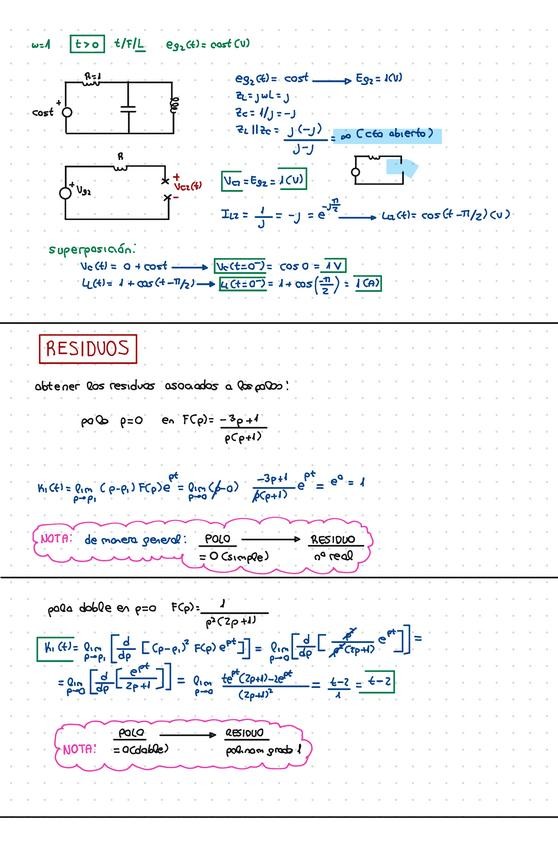 ω=1 t>0 t/F/L eg₂(t)= cost(V)
R=1
cost +
eg₂(t) = cost → Eg₂ = 1(V)
ZL = jωL = j
Zc = 1/j = -j
ZL || Zc = j(-j) / j-j = ∞ (cto abierto)
R
+ Vg₂
+ Vc₂(t) -
Vc₂ = Eg₂ = 1(V)
IL₂ = 1/j = -j = e^(-jπ/2) → iL₂(t) = cos(t-π/2) (V)
superposición:
Vc(t) = 0 + cost → Vc(t=0⁻) = cos0 = 1V
iL(t) = 1 + cos(t-π/2) → iL(t=0⁻) = 1 + cos(-π/2) = 1(A)
RESIDUOS
obtener los residuos asociados a los polos:
polo p=0 en F(p) = -3p+1 / p(p+1)
K₁(t) = lim p→p₁ (p-p₁) F(p)e^pt = lim p→0 (p-0) -3p+1 / p(p+1) e^pt = e⁰ = 1
NOTA: de manera general: POLO → RESIDUO
=0 (simple) nº real
polo doble en p=0 F(p) = 1 / p²(2p+1)
K₁(t) = lim p→p₁ [d/dp [(p-p₁)² F(p) e^pt]] = lim p→0 [d/dp [p² / p²(2p+1) e^pt]] =
= lim p→0 [d/dp [e^pt / 2p+1]] = lim p→0 te^pt(2p+1)-2e^pt / (2p+1)² = t-2 / 1 = t-2
POLO → RESIDUO
NOTA: =0(doble) polinom grado 1